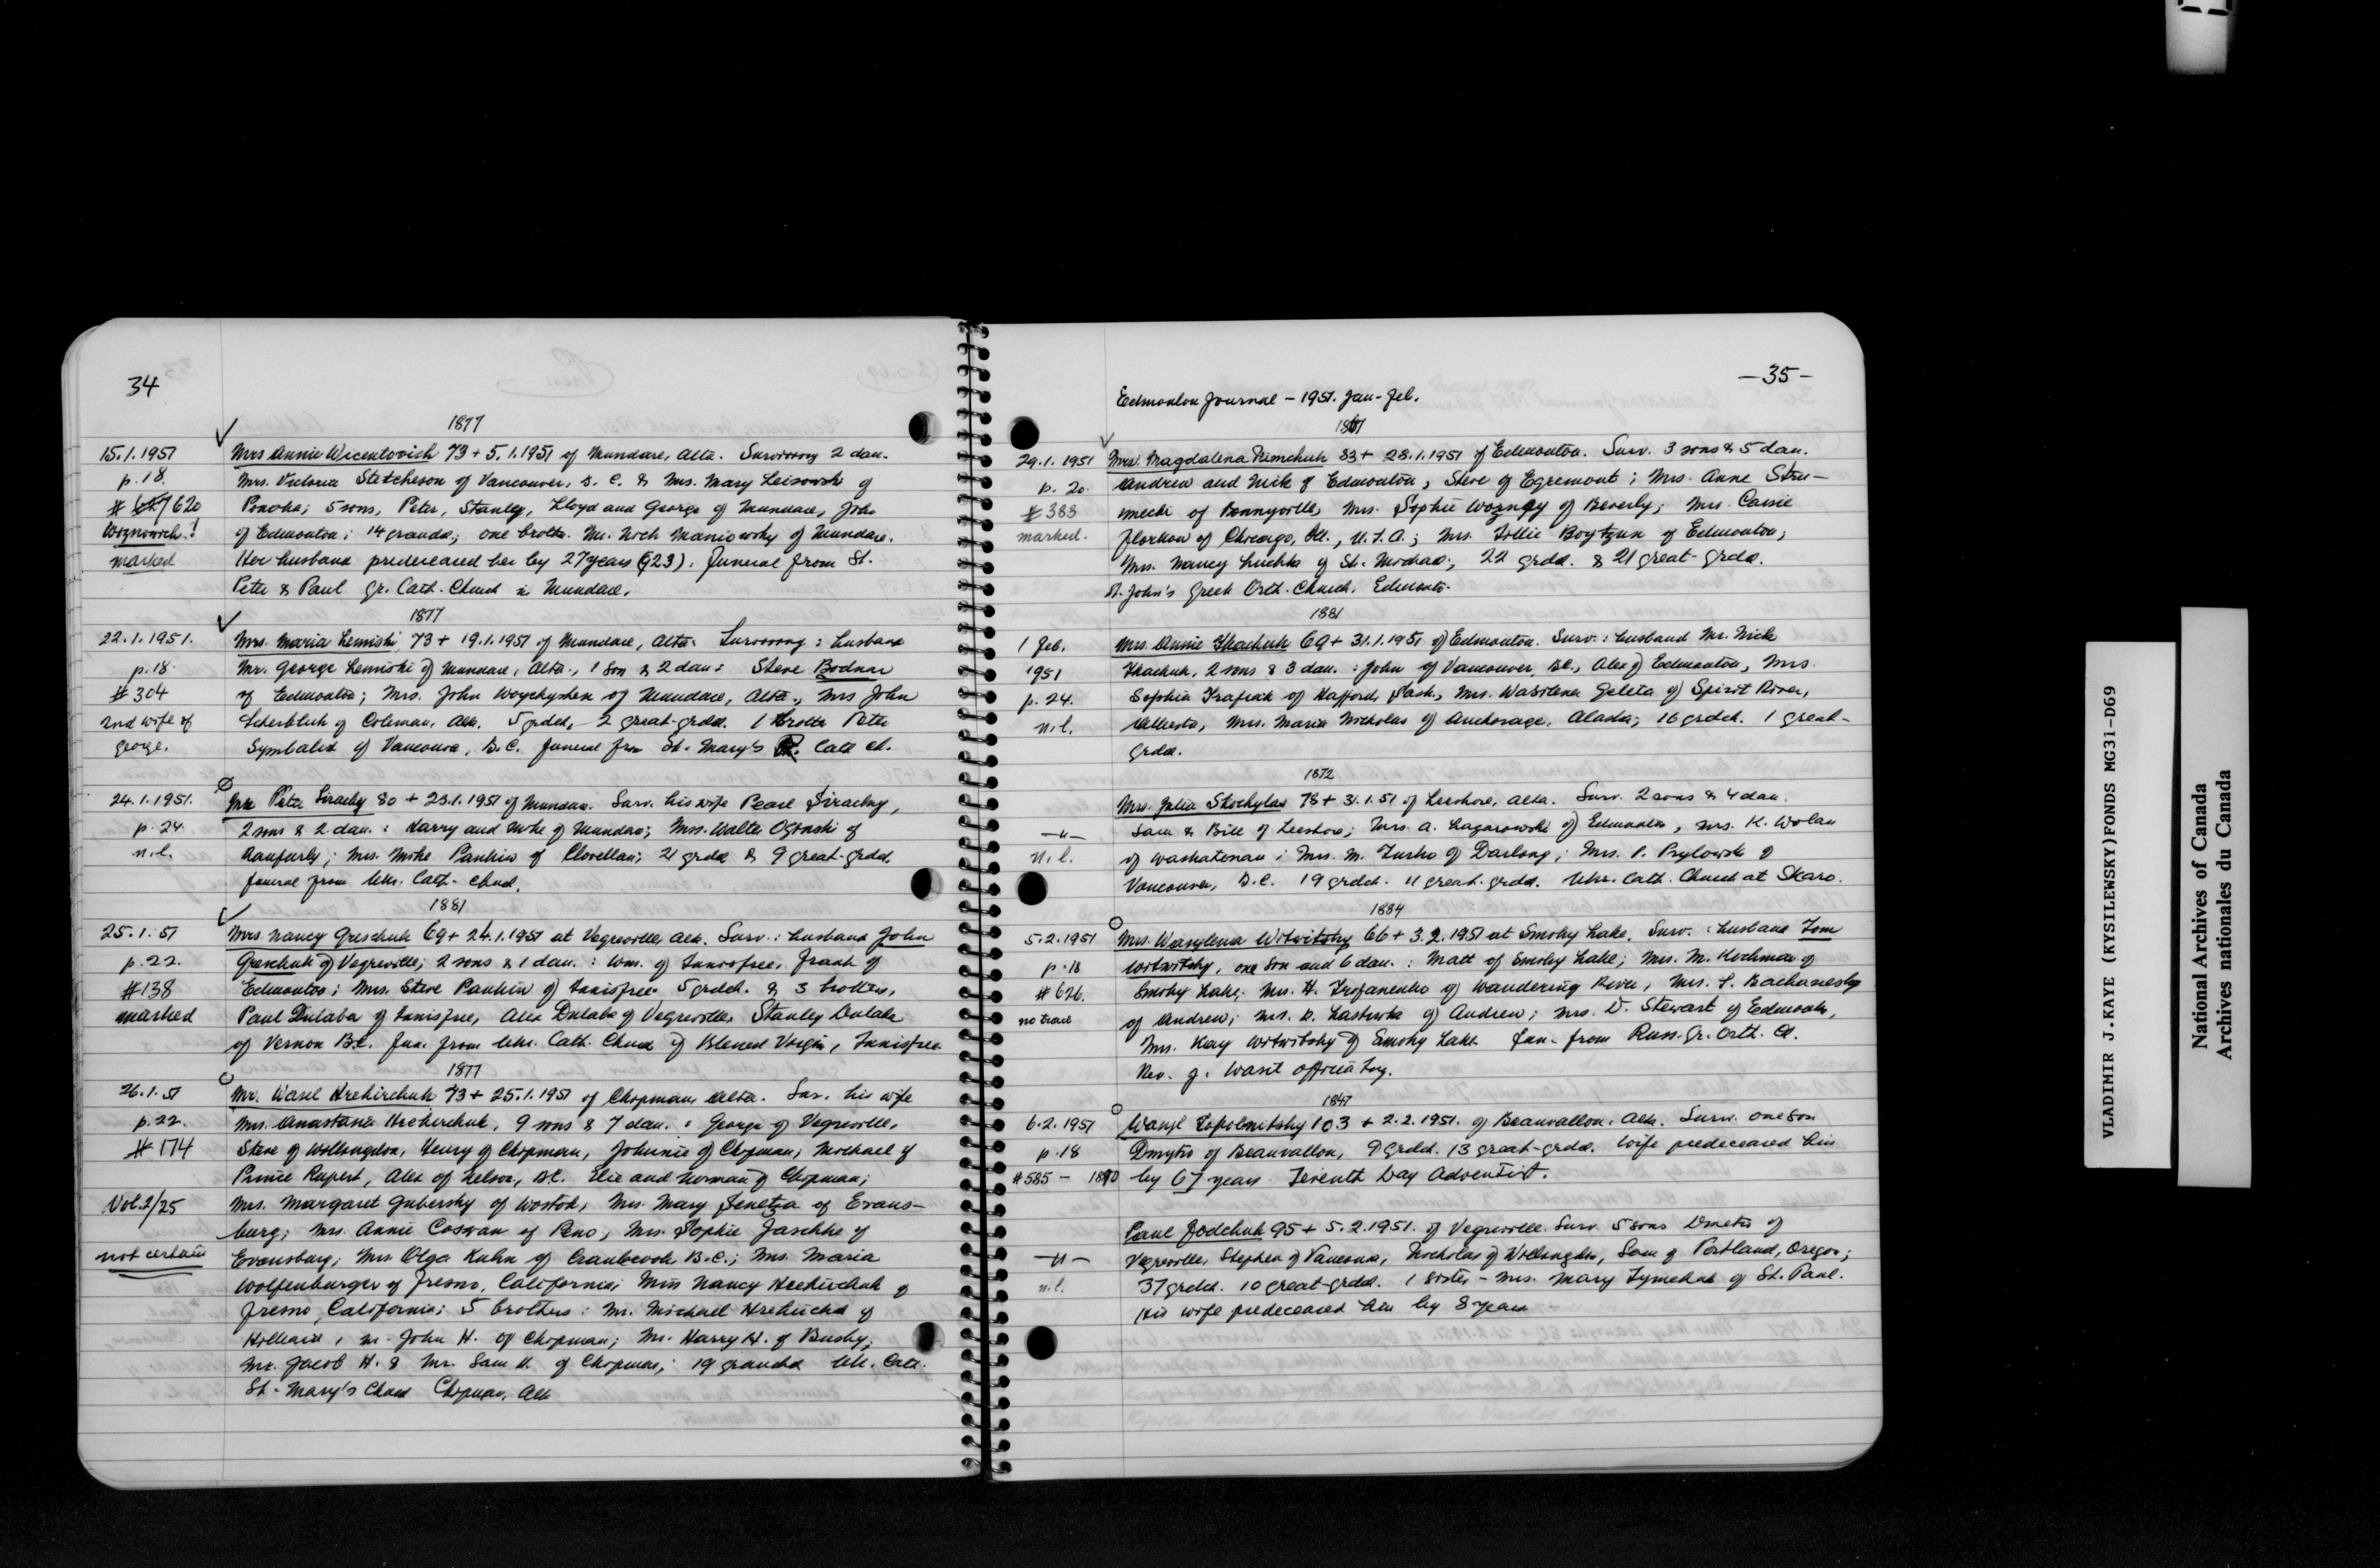 34
1877
15.1.1951 Mrs Annie Wicentovich 73 + 5.1.1951 of Mundare, Alta. Surviving 2 dau.
p.18. Mrs. Victoria Stetcheson of Vancouver, B.C. & Mrs. Mary Leisowsk of
# 620 Ponoka; 5 sons, Peter, Stanley, Lloyd and George of Mundare, John
Woznowich! of Edmonton; 14 grandd; one broth. Mr. Noch Maniowsky of Mundare.
marked Her husband predeceased her by 27 years (923). Funeral from St.
Peter & Paul Gr. Cath. Church in Mundare.
1877
22.1.1951. Mrs. Maria Lemiski, 73 + 19.1.1951 of Mundare, Alta. Surviving: husband
p.18. Mr. George Lemiski of Mundare, Alta., 1 son & 2 dau: Steve Bodnar
# 304 of Edmonton; Mrs. John Woychyshen of Mundare, Alta., Mrs John
2nd wife of of Coleman, Alta. 5 grdch, 2 great-grdd. 1 brother Peter
George. Symbalix of Vancouver, B.C. funeral from St. Mary's Cath ch.
24.1.1951. Peter Siracky 80 + 23.1.1951 of Mundare. Surv. his wife Pearl Siracky,
p.24. 2 sons & 2 dau.: Harry and Mike of Mundare; Mrs. Walter Ogonski of
n.l. Ranfurly; Mrs. Mike Pankiw of Clovellan; 21 grdd & 9 great-grdd.
funeral from Ukr. Cath. Church.
1881
25.1.51 Mrs. Nancy Greschuk 69 + 24.1.1951 at Vegreville, Alta. Surv.: husband John
p.22. Greschuk of Vegreville; 2 sons & 1 dau.: Wm. of Innisfree, Frank of
#138 Edmonton; Mrs. Steve Pankiw of Innisfree. 5 grdch. & 3 brothers,
marked Paul Dulaba of Innisfree, Alex Dulaba of Vegreville, Stanley Dulaba
of Vernon B.C. Fun. from Ukr. Cath. Church of Blessed Virgin, Innisfree
1877
26.1.51 Mr. Wasil Hrehirchuk 73 + 25.1.1951 of Chipman, Alta. Sur. his wife
p.22. Mrs. Anastasia Hrehirchuk, 9 sons & 7 dau.: George of Vegreville,
# 174 Steve of Willingdon, Henry of Chipman, Johnnie of Chipman; Michael of
Prince Rupert, Alex of Nelson, B.C. Elie and Norman of Chipman;
Vol.2/25 Mrs. Margaret Gubersky of Wostok, Mrs. Mary Senetza of Evans-
burg; Mrs. Annie Coswan of Reno, Mrs. Sophie Jaschke of
not certain Evansburg; Mrs Olga Kuhn of Cranbrook B.C.; Mrs. Maria
Wolfenburger of Fresno, California; Miss Nancy Hrehirchuk of
Fresno, California; 5 brothers: Mr. Michael Hrehirchuk of
Hilliard, Mr. John H. of Chipman; Mr. Harry H. of Busby;
Mr. Jacob H. & Mr. Sam H. of Chipman; 19 grandch Ukr. Cath.
St. Mary's Church Chipman, Alta
-35-
Edmonton Journal - 1951. Jan-Feb.
29.1.1951 Mrs. Magdalena Rimchuk 83 + 28.1.1951 of Edmonton. Surv. 3 sons & 5 dau.
p. 20. Andrew and Nick of Edmonton, Steve of Egremont; Mrs. Anne Stru-
#383 mecki of Bonnyville, Mrs. Sophie Wozney of Beverly; Mrs. Cassie
marked. Florkow of Chicago, Ill., U.S.A.; Mrs. Tillie Boytzun of Edmonton;
Mrs. Nancy Luchka of St. Michael; 22 grdd. & 21 great-grdd.
St. John's Greek Orth. Church, Edmonton.
1881
1 Feb. Mrs. Annie Tkachuk 69 + 31.1.1951 of Edmonton. Surv.: husband Mr. Nick
1951 Tkachuk, 2 sons & 3 dau.: John of Vancouver, B.C., Alex of Edmonton, Mrs.
p. 24. Sophia Trafiak of Hafford, Sask., Mrs. Wasilena Geleta of Spirit River,
n.l. Alberta, Mrs. Maria Nicholas of Anchorage, Alaska; 16 grdch. 1 great-
grdd.
1872
Mrs. Julia Shochylas 78 + 31.1.51 of Leeshore, Alta. Surv. 2 sons & 4 dau.
-"- Sam & Bill of Leeshore; Mrs. A. Lazarowski of Edmonton, Mrs. K. Wolan
n.l. of Waskatenau; Mrs. M. Turko of Darlong; Mrs. P. Prylowsk of
Vancouver, B.C. 19 grdch. 11 great-grdd. Ukr. Cath. Church at Skaro.
1884
5.2.1951 Mrs. Wasylena Witwitsky 66 + 3.2.1951 at Smoky Lake. Surv.: husband Tom
p.18 Witwitsky, one son and 6 dau.: Matt of Smoky Lake; Mrs. M. Kochman of
#626. Smoky Lake; Mrs. H. Trofanenko of Wandering River, Mrs. F. Bachanesky
no trace of Andrew; Mrs. D. Lastiwka of Andrew; Mrs. D. Stewart of Edmonton,
Mrs. Kay Witwitsky of Smoky Lake. Fun. from Russ. Gr. Orth. Ch.
Rev. J. Wasil officiating.
1847
6.2.1951 Wasyl Topolnitsky 103 + 2.2.1951. of Beauvallon, Alta. Surv. one son
p.18 Dmytro of Beauvallon, 9 grdch. 13 great-grdd. Wife predeceased him
#585 - 1890 by 67 years. Seventh Day Adventist.
Paul Jodchuk 95 + 5.2.1951. of Vegreville. Surv. 5 sons Dmetro of
-"- Vegreville, Stephen of Vancouver, Nicholas of Willingdon, Sam of Portland, Oregon;
n.l. 37 grdch. 10 great-grdd. 1 sister - Mrs. Mary Tymchuk of St. Paul.
His wife predeceased him by 8 years.
VLADIMIR J.KAYE (KYSILEWSKY)FONDS MG31-D69
National Archives of Canada
Archives nationales du Canada